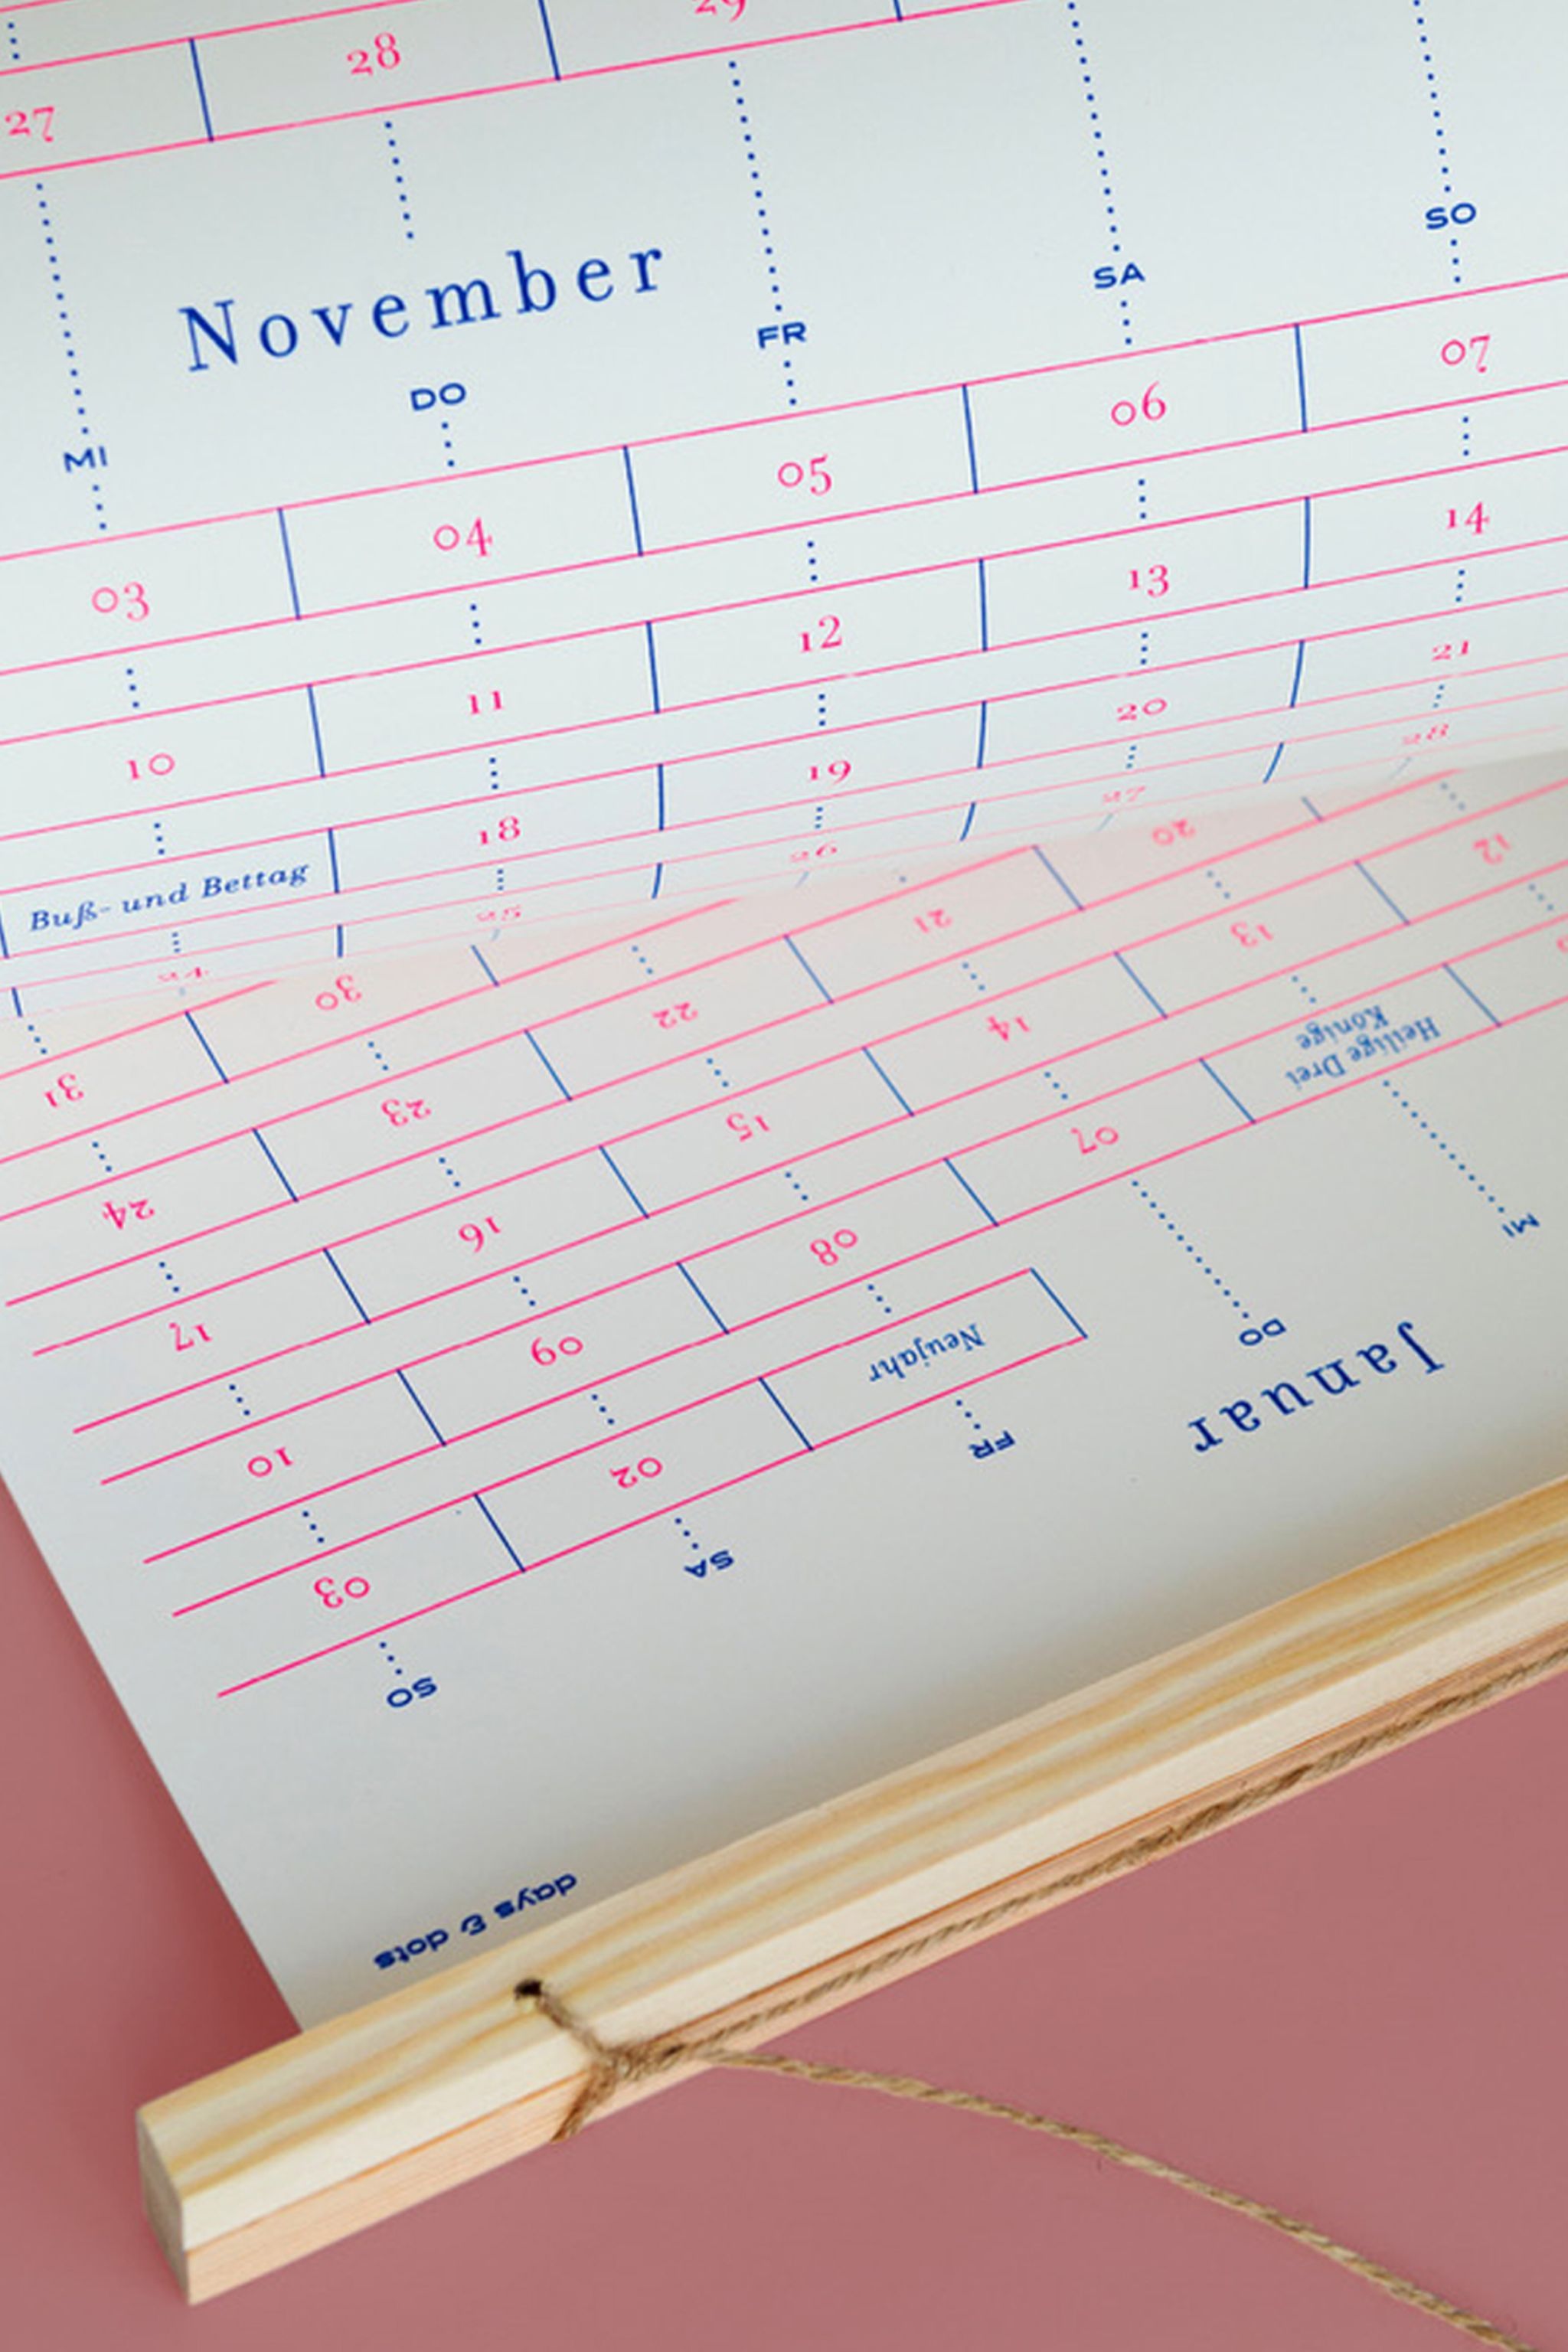 27 28 29
November
MI DO FR SA SO
03 04 05 06 07
10 11 12 13 14
Buß- und Bettag 18 19 20 21
24 25 26 27 28
days & dots
Januar
MI DO FR SA SO
Neujahr 02 03
Heilige Drei
Könige
07 08 09 10
12 13 14 15 16 17
20 21 22 23 24
30 31